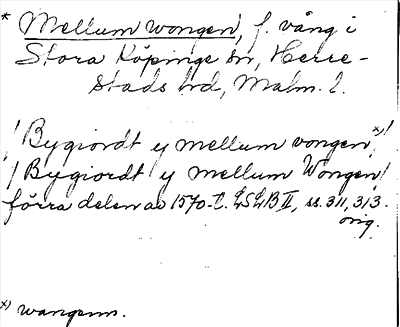 * Mellum wongen, f. vång i
Stora Köpinge sn, Herre-
stads hd, Malm. l.
/Bygiordt y mellum vongen x)/
/Bygiordt y mellum Wongen/
förra delen av 1570-t. LSLB II, ss. 311, 313.
orig.
x) wangenn.